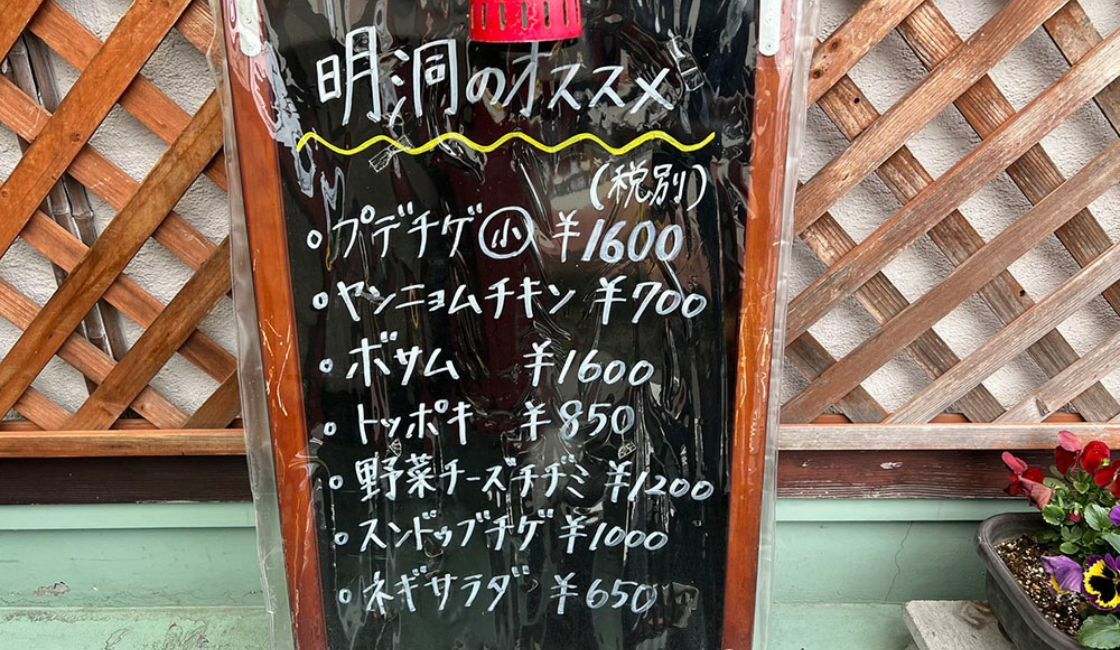 明洞のオススメ
(税別)
○プデチゲ㊙小 ¥1600
○ヤンニョムチキン ¥700
○ボサム ¥1600
○トッポキ ¥850
○野菜チーズチヂミ ¥1200
○スンドゥブチゲ ¥1000
○ネギサラダ ¥650